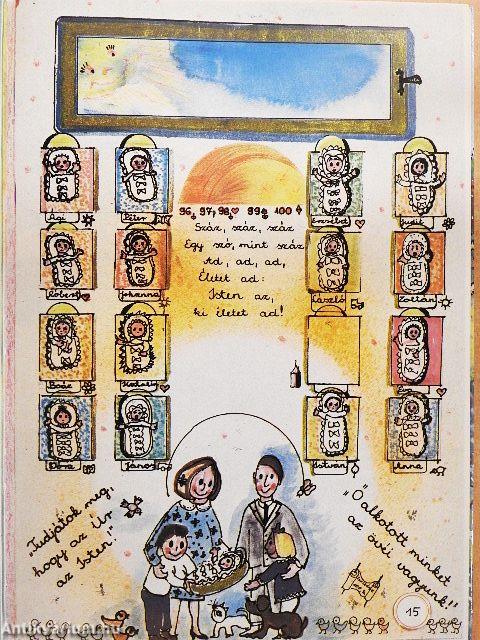 96, 97, 98, 99, 100
Száz, száz, száz
Egy szó, mint száz
Ad, ad, ad,
Életet ad:
Isten az,
ki életet ad!
Ági Péter Erzsébet Judit
Róbert Johanna László Zoltán
Beáta Katalin Éva
Dóra János István Anna
„Tudjátok meg,
hogy az Úr
az Isten!"
„Ő alkotott minket
az övéi vagyunk!"
15
Antikvarium.hu